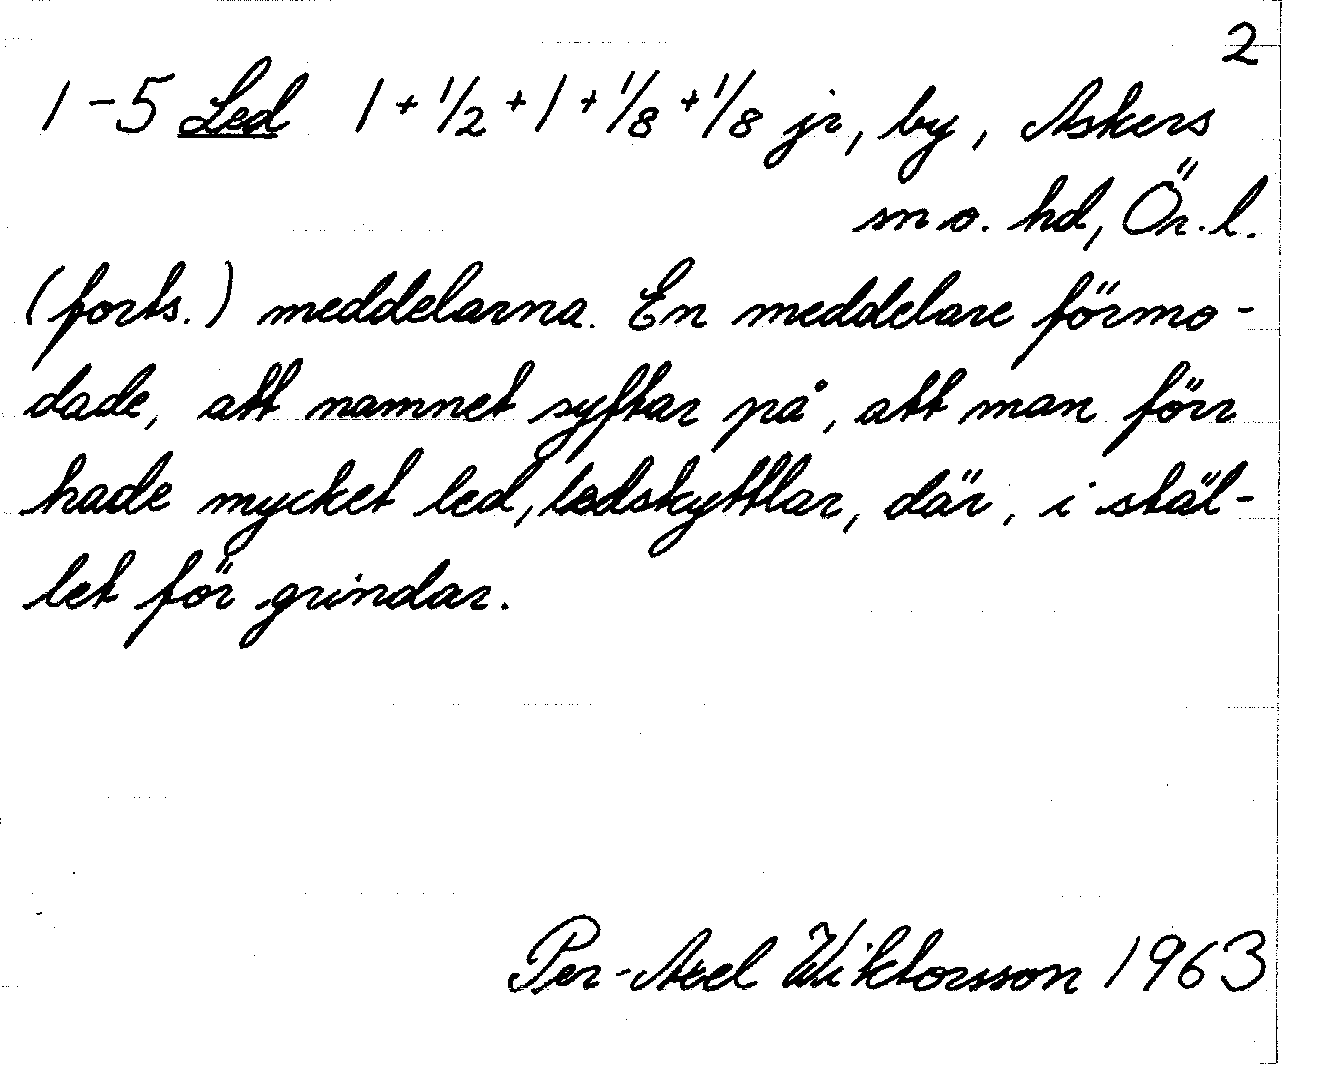 2
1-5 Led 1+1/2+1+1/8+1/8 jr, by, Askers
sn o. hd, Ör. l.
(forts.) meddelarna. En meddelare förmo-
dade, att namnet syftar på, att man förr
hade mycket led, ledskyttlar, där, i stäl-
let för grindar.
Per-Axel Wiktorsson 1963